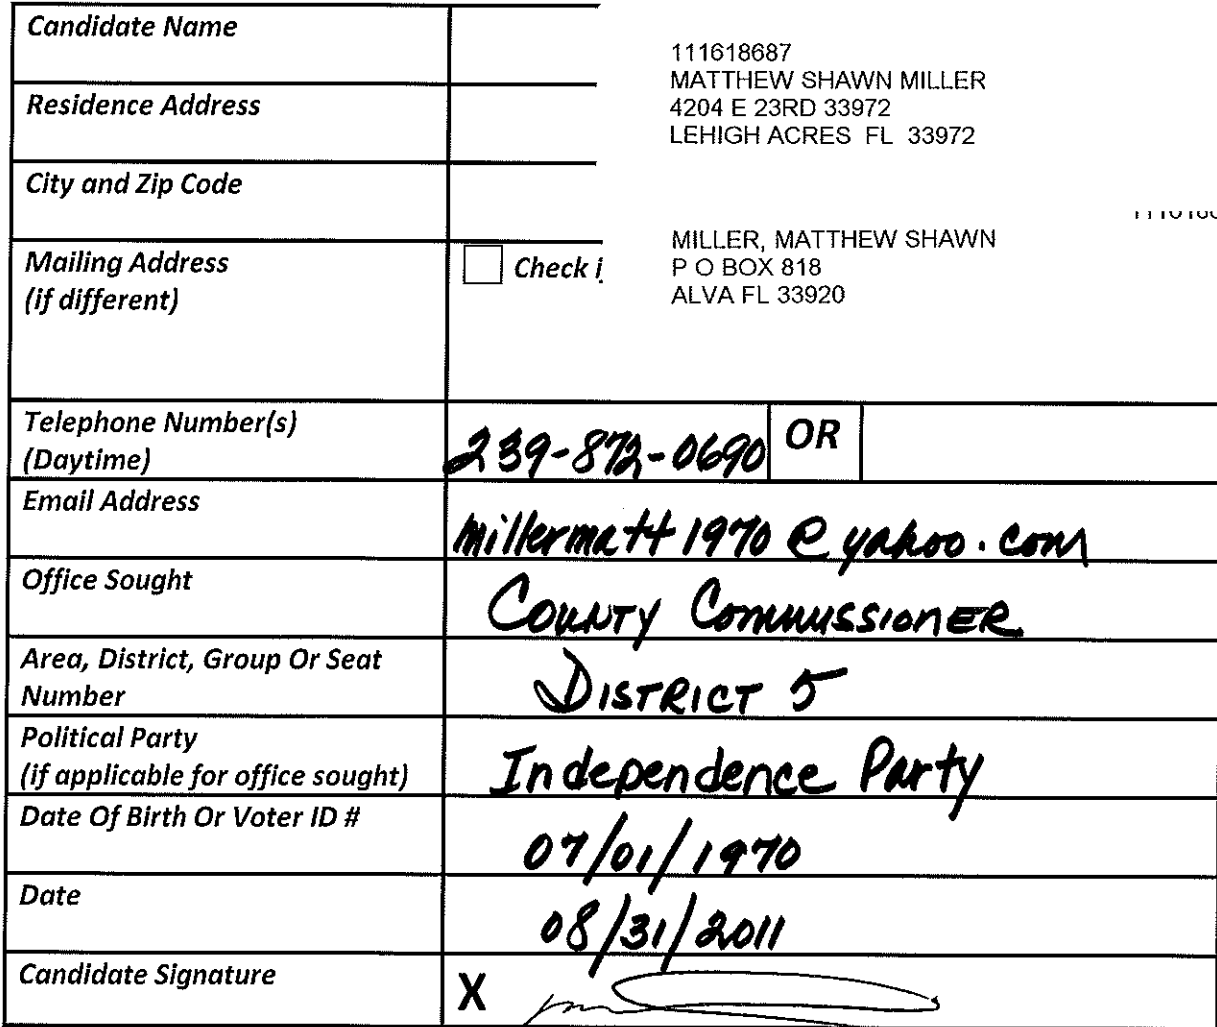 Candidate Name
111618687
MATTHEW SHAWN MILLER
Residence Address
4204 E 23RD 33972
LEHIGH ACRES FL 33972
City and Zip Code
Mailing Address
(if different)
Check i
MILLER, MATTHEW SHAWN
P O BOX 818
ALVA FL 33920
Telephone Number(s)
(Daytime)
239-872-0690 OR
Email Address
millermatt1970@yahoo.com
Office Sought
COUNTY COMMISSIONER
Area, District, Group Or Seat
Number
DISTRICT 5
Political Party
(if applicable for office sought)
Independence Party
Date Of Birth Or Voter ID #
07/01/1970
Date
08/31/2011
Candidate Signature
X